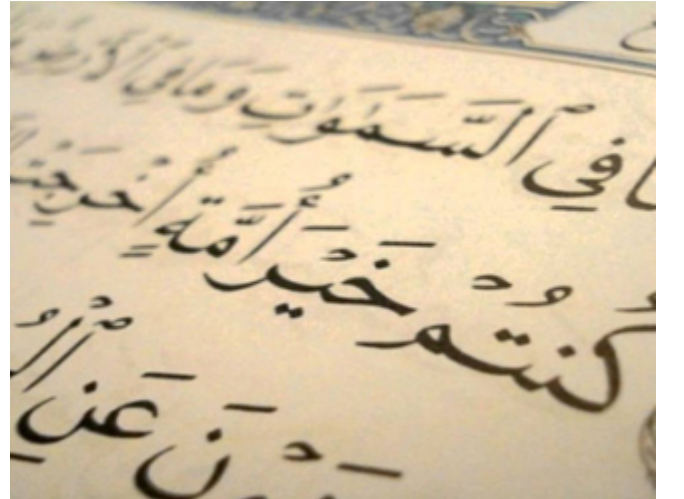 مَا فِي ٱلسَّمَٰوَٰتِ وَمَا فِي ٱلْأَرْضِ
كُنتُمْ خَيْرَ أُمَّةٍ أُخْرِجَتْ
عَنِ